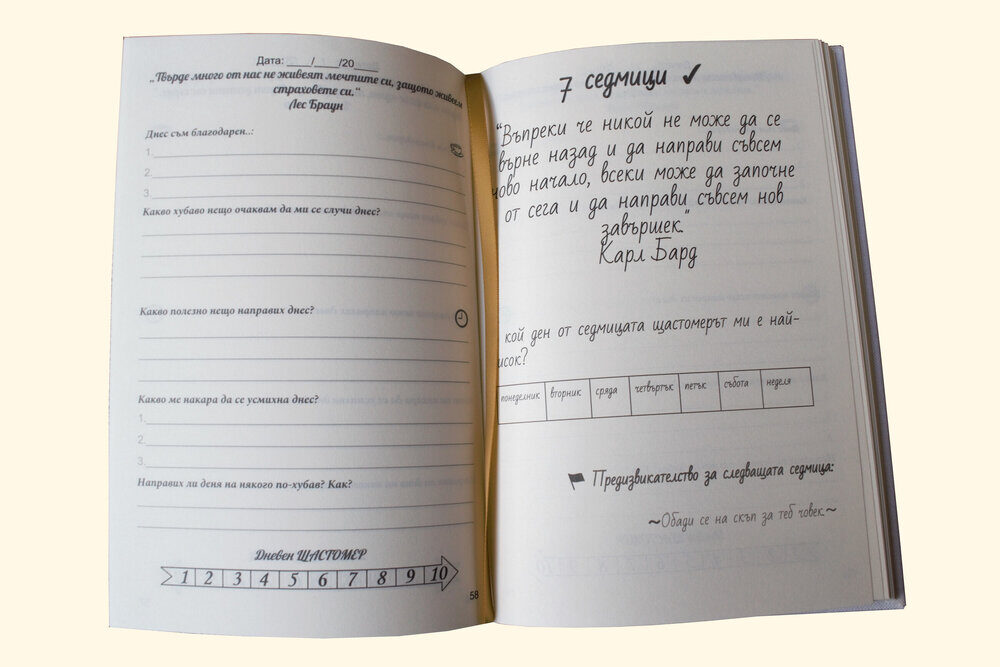 Дата: ____/____/20____
„Твърде много от нас не живеят мечтите си, защото живеем
страховете си.“
Лес Браун
Днес съм благодарен..:
1.
2.
3.
Какво хубаво нещо очаквам да ми се случи днес?
Какво полезно нещо направих днес?
Какво ме накара да се усмихна днес?
1.
2.
3.
Направих ли деня на някого по-хубав? Как?
Дневен ЩАСТОМЕР
1 2 3 4 5 6 7 8 9 10
58
7 седмици ✓
“Въпреки че никой не може да се
върне назад и да направи съвсем
ново начало, всеки може да започне
от сега и да направи съвсем нов
завършек.”
Карл Бард
кой ден от седмицата щастомерът ми е най-
исок?
понеделник вторник сряда четвъртък петък събота неделя
Предизвикателство за следващата седмица:
~Обади се на скъп за теб човек.~